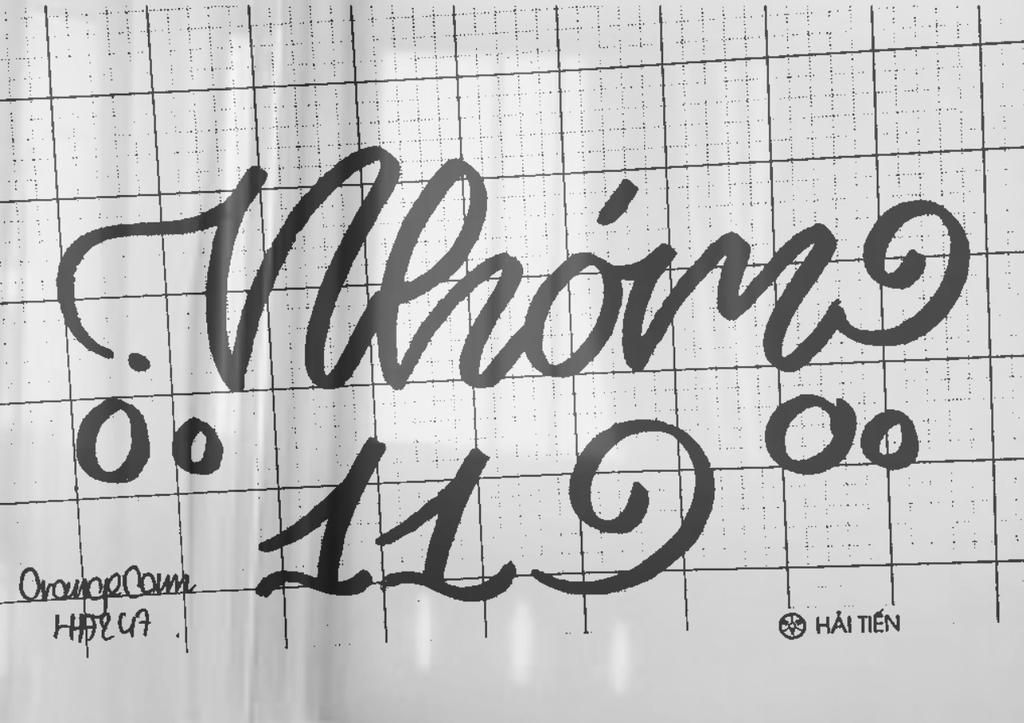 Nhóm
11
OrangeCam
HAZ47
HẢI TIẾN